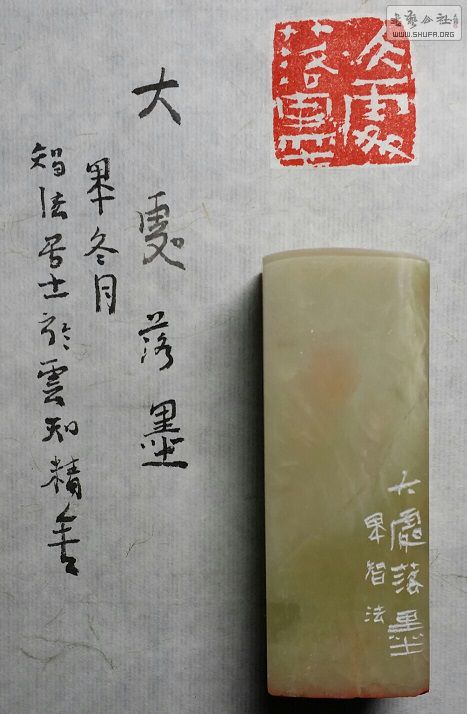 书艺公社
WWW.SHUFA.ORG
大處落墨
大處落墨
甲午冬月
智法居士於雲知精舍
大處落墨
甲午智法